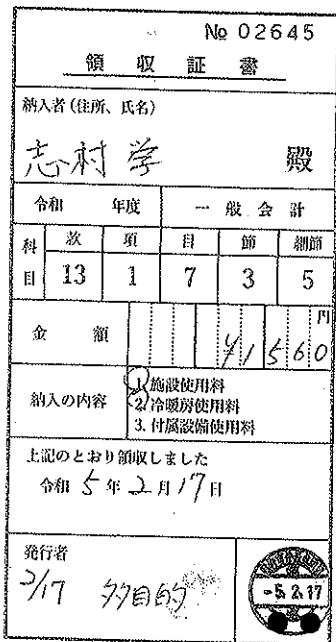 № 02645
領収証書
納入者(住所、氏名)
志村 学 殿
令和 年度 一般会計
科目 款 項 目 節 細節
13 1 7 3 5
金額 ¥1560 円
納入の内容
1. 施設使用料
2. 冷暖房使用料
3. 付属設備使用料
上記のとおり領収しました
令和 5 年 2 月 17 日
発行者
2/17 多目的
-5.2.17